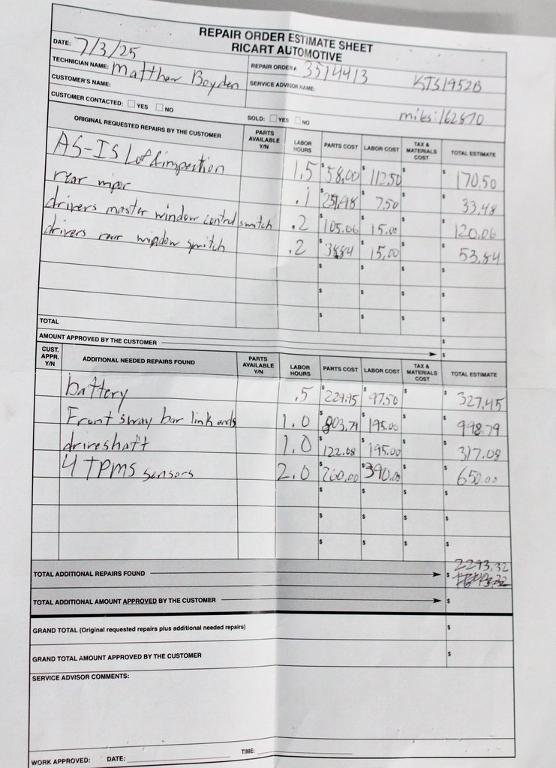 REPAIR ORDER ESTIMATE SHEET
RICART AUTOMOTIVE
DATE: 7/3/25
REPAIR ORDER#: 3514413 KTS1952B
TECHNICIAN NAME: Matthew Boyden
SERVICE ADVISOR NAME:
CUSTOMER'S NAME:
CUSTOMER CONTACTED: YES NO SOLD: YES NO miles: 162870
ORIGINAL REQUESTED REPAIRS BY THE CUSTOMER PARTS AVAILABLE Y/N LABOR HOURS PARTS COST LABOR COST TAX & MATERIALS COST TOTAL ESTIMATE
AS-IS Lof & inspection 1.5 $58.00 112.50 $170.50
rear wiper .1 $ 7.50 $33.48
drivers master window control switch .2 $105.06 15.00 $120.06
drivers rear window switch .2 $38.84 15.00 $53.84
TOTAL
AMOUNT APPROVED BY THE CUSTOMER $
CUST. APPR. Y/N ADDITIONAL NEEDED REPAIRS FOUND PARTS AVAILABLE Y/N LABOR HOURS PARTS COST LABOR COST TAX & MATERIALS COST TOTAL ESTIMATE
battery .5 $229.95 97.50 $327.45
Front sway bar link ends 1.0 $803.79 195.00 $998.79
driveshaft 1.0 $122.08 195.00 $317.08
4 TPMS sensors 2.0 $260.00 $390.00 $650.00
2293.32
TOTAL ADDITIONAL REPAIRS FOUND $
TOTAL ADDITIONAL AMOUNT APPROVED BY THE CUSTOMER $
GRAND TOTAL (Original requested repairs plus additional needed repairs) $
GRAND TOTAL AMOUNT APPROVED BY THE CUSTOMER $
SERVICE ADVISOR COMMENTS:
WORK APPROVED: DATE: TIME: